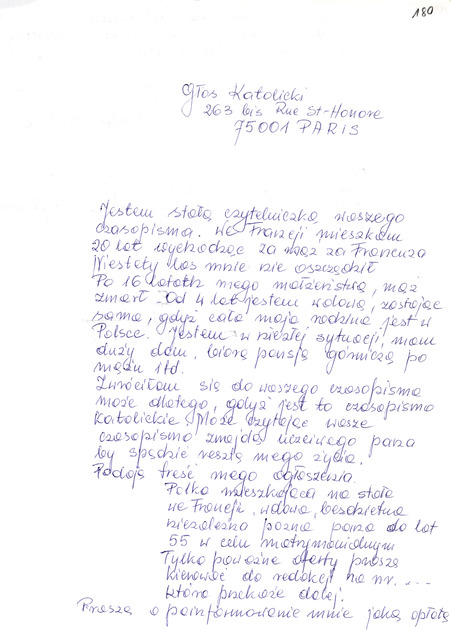 180
Głos Katolicki
263 bis Rue St-Honore
75001 PARIS
Jestem stałą czytelniczką waszego
czasopisma. We Francji mieszkam
20 lat wychodząc za mąż za Francuza
Niestety los mnie nie oszczędził
Po 16 latach mego małżeństwa, mąż
zmarł. Od 4 lat jestem wdową, zostając
sama, gdyż cała moja rodzina jest w
Polsce. Jestem w niezłej sytuacji, mam
duży dom, biorę pensję górniczą po
mężu itd.
Zwróciłam się do waszego czasopisma
może dlatego, gdyż jest to czasopismo
Katolickie. Może czytając wasze
czasopismo znajdę uczciwego pana
by spędzić resztę mego życia.
Podaję treść mego ogłoszenia.
Polka mieszkająca na stałe
we Francji, wdowa, bezdzietna
niezależna pozna pana do lat
55 w celu matrymonialnym
Tylko poważne oferty proszę
kierować do redakcji na nr. ....
która przekaże dalej.
Proszę o poinformowanie mnie jaką opłatę